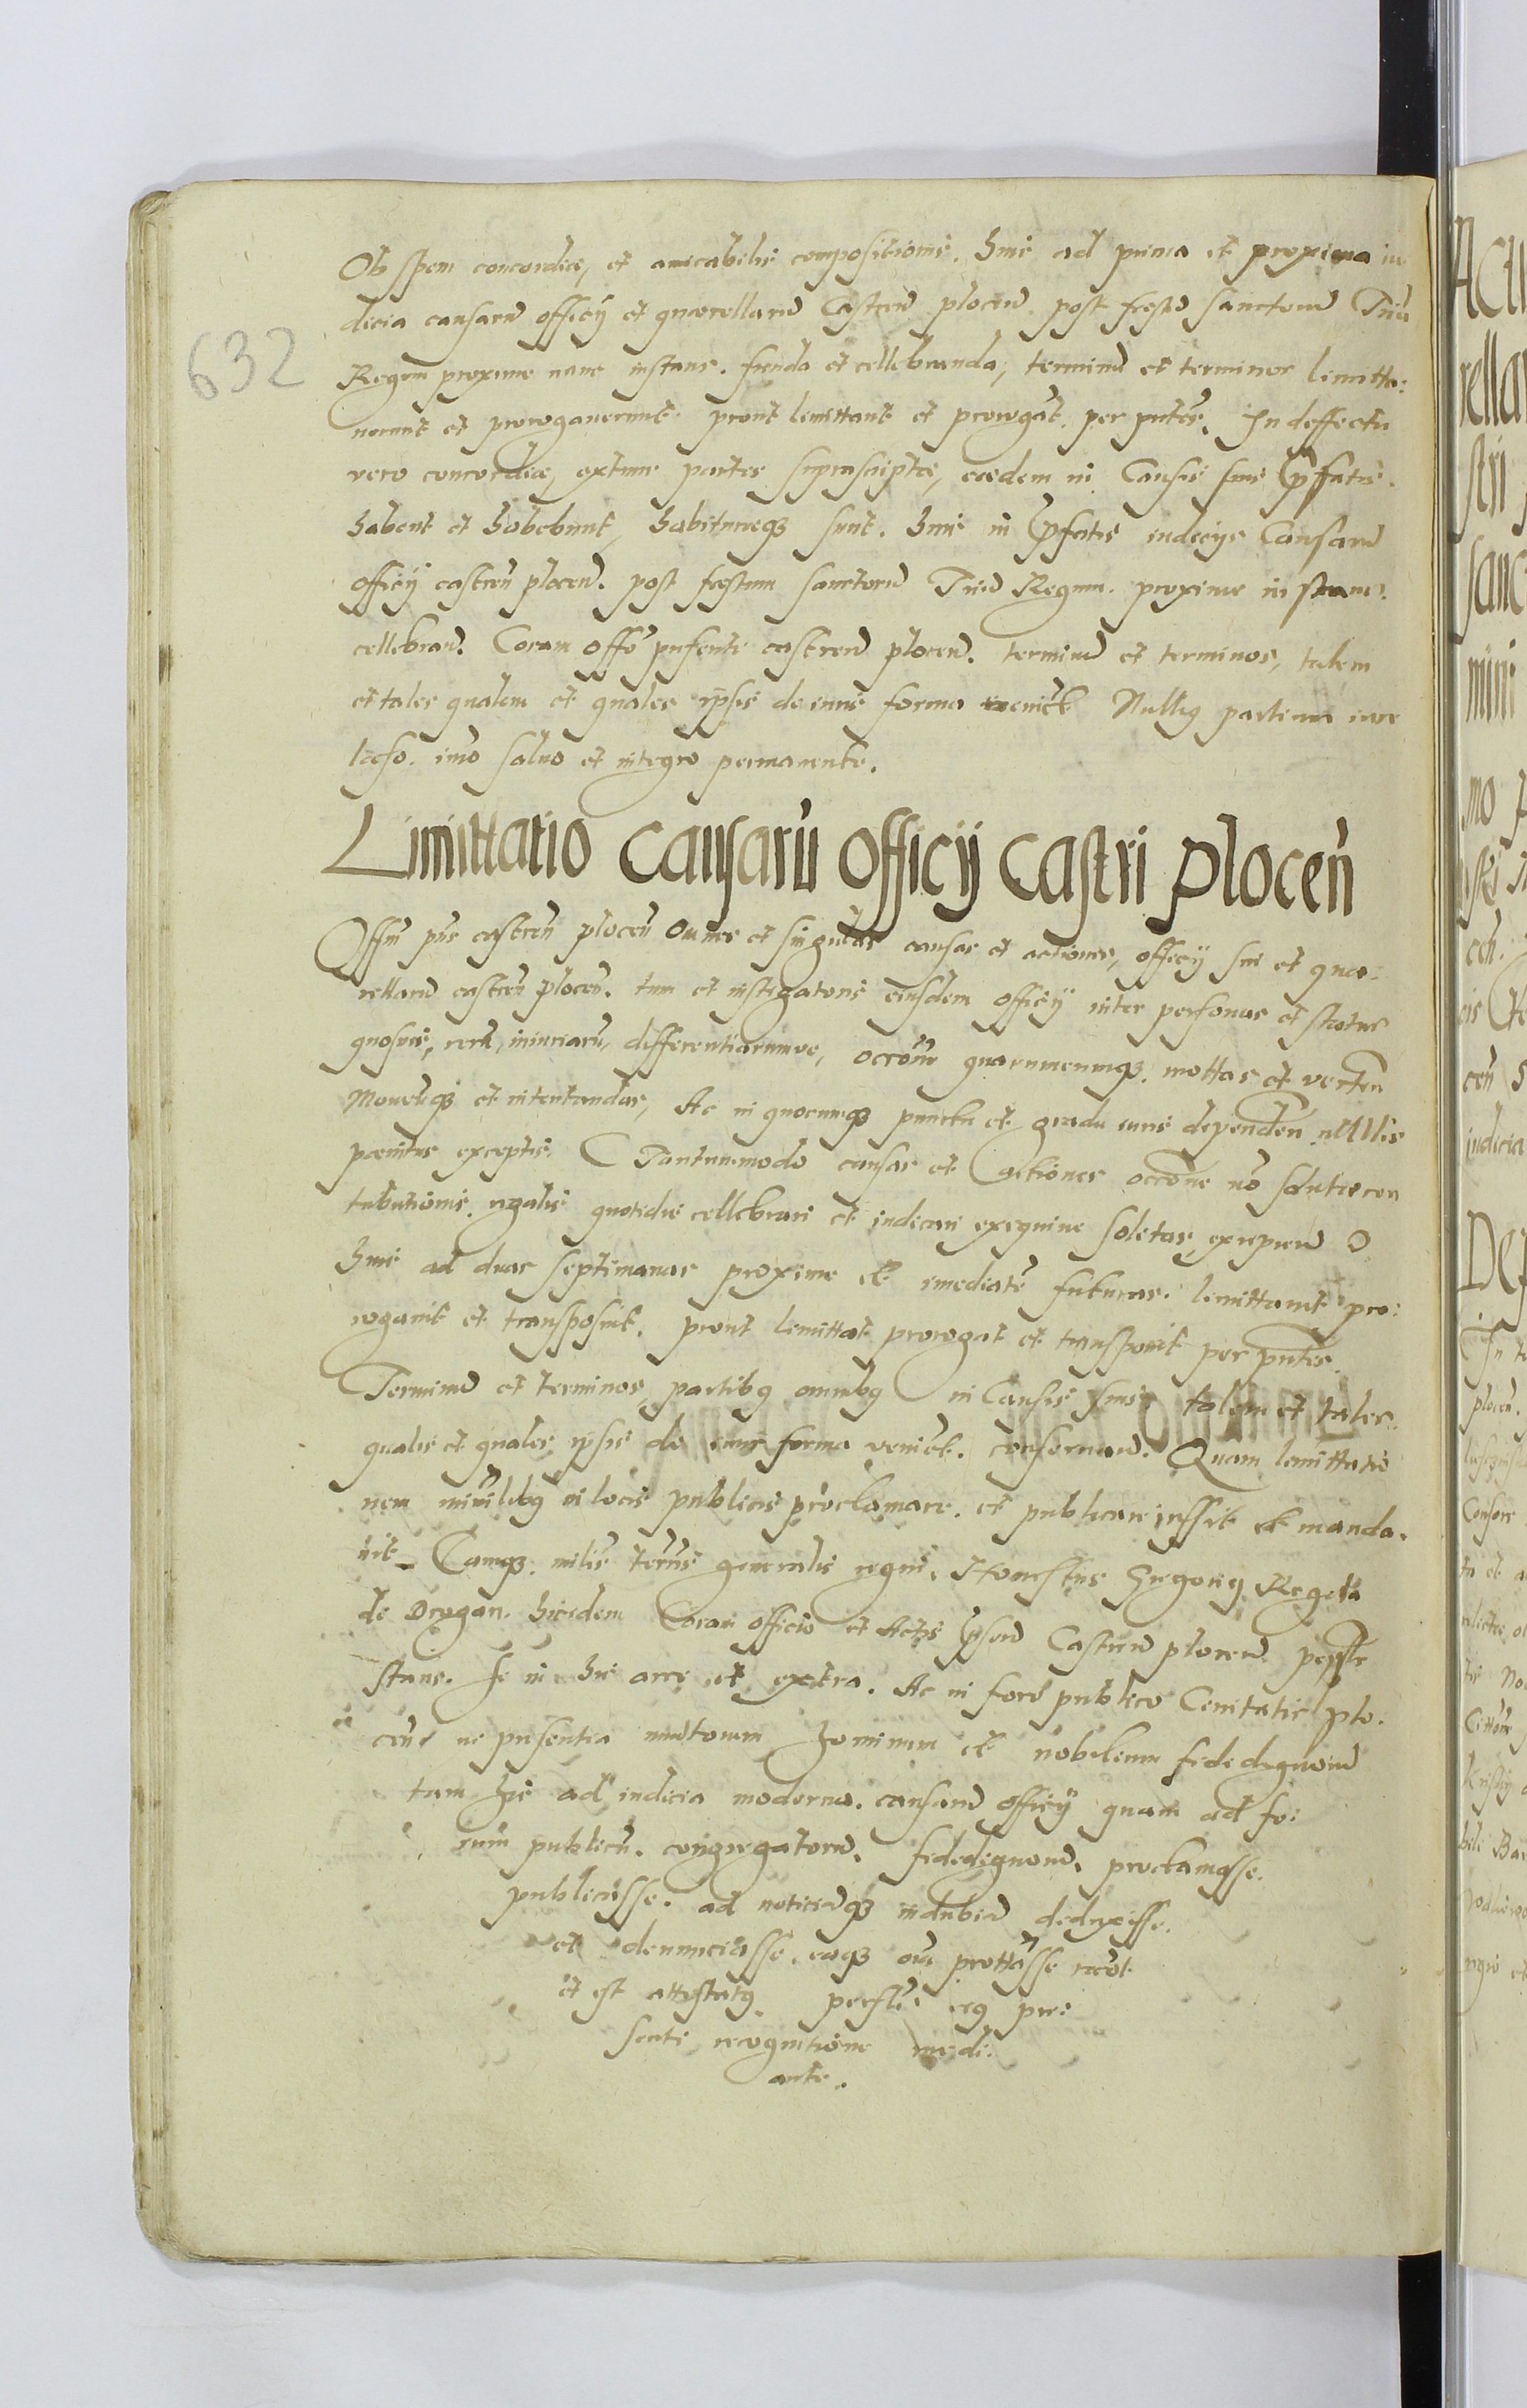 Ob spem concordiæ, et amicabilis compositionis. hinc ad prima et proxima iu
dicia causarũ officÿ et quærellarũ Castreñ plocen̄. post festũ sanctorũ Triũ
632
Regum proxime nunc instañ. fienda et cellebranda, terminũ et terminos limitta:
verunt et prorogaverunt prout limittant et prorogāt. per pntēs. In deffectu
vero concordiæ, extunc partes suprascriptæ, eædem in Causis suis p̄fatis.
habent et habebunt, habituræq₃ sunt. hinc in p̄fatis iudicÿs Causarũ
officÿ castren̄ plocen̄. post festum sanctorũ Triũ Regum. proxime instañ.
cellebran̄. Coram offō pnsente castren̄ plocen̄. terminũ et terminos, talem
et tales qualem et quales ipsis de iuris forma venict̄ Nulliꝯ partium iure
læso. imo salvo et integro permanente.
Limittatio Causarũ Officÿ Castri Plocen̄
Offm̄ pñs castren̄ plocen̄ Omnes et singulas causas et actiones, officÿ sui et quæ:
rellarũ castren̄ plocen̄. tum et instigatoris eiusdem officÿ inter personas et status
quosvis, rerũ, iniuriarũ, differentiarumve, occōne quarumcunq₃. mottas et verten̄
Moven̄q₃ et intentandas, Ac in quocunq₃ puncto et gradu iuris dependen̄ nullis
pœnitus exceptis. Tantummodo causas et Actiones occōne nō
tributionis regalis quotidie cellebrari et iudicari exequive solitas excipien̄
hinc ad duas septimanas proxime et imediatē futuras. limittavit pro:
rogavit et transposuit. prout limittat prorogat et transponit per pntēs.
Terminũ et terminos partibꝯ omnibꝯ in Causis suis talem et tales
qualē et quales ipsis de iuris forma venict̄. conservan̄. Quam limittatio
nem in locis publicis proclamare. et publicare iussit et manda.
vit. Camq₃. ministē terr̄is generalis regni. Honestus Gregoriꝯ Regela
de Drogan. ibidem Coram officio et Actis p̄sen̄ Castren̄ plocen̄ personr
stans. se in hic arce et extra. Ac in foro publico Civitatis plo.
cen̄ in præsentia multorum hominum et nobilium fidedignorũ
tam hic ad iudicia moderna. causarũ officÿ quam ad fo:
rum publicũ. congregatorũ. fidedignorũ. proclamasse.
publicasse. ad noticiamq₃ indubiã deduxisse.
et denunciasse. eaq₃ oīa prottasse recōt
et est attestatꝯ eiꝯ præ:
senti recognitione medi:
ante.